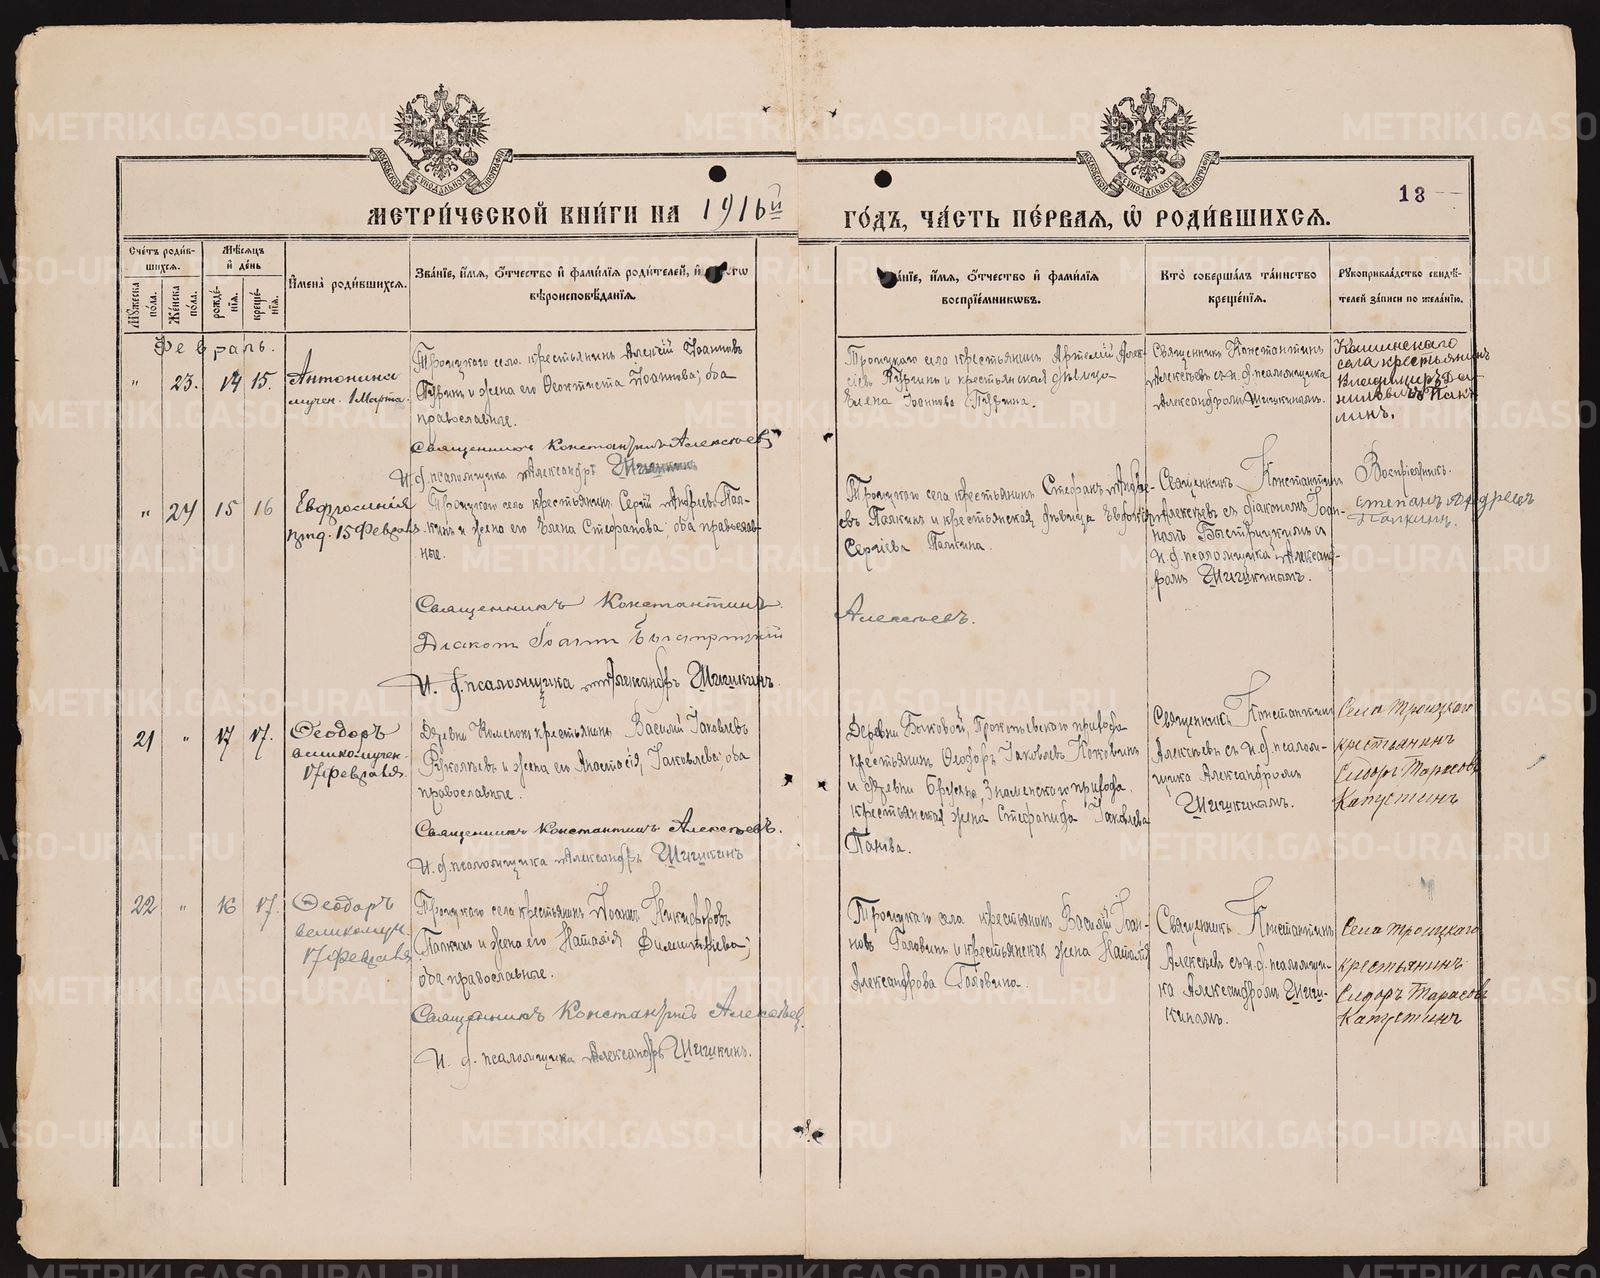 МОСКОВСКОЙ СѴНОДАЛЬНОЙ ТИПОГРАФІИ
МОСКОВСКОЙ СѴНОДАЛЬНОЙ ТИПОГРАФІИ
18
МЕТРИ́ЧЕСКОЙ КНИ́ГИ НА 1916й
ГО́ДЪ, ЧА́СТЬ ПЕ́РВАЯ, Ѿ РОДИ́ВШИХСЯ.
Сче́тъ роди́вшихся.
Мѣ́сяцъ и́ де́нь
Му́жеска по́ла.
Же́нска по́ла.
рожде́нїя.
креще́нїя.
И҆мена̀ роди́вшихся.
Зва́нїе, и҆́мя, ѻ҆́тчество и҆ фами́лїя роди́телей, и҆
вѣроисповѣ́данїя.
и҆́мя, ѻ҆́тчество и҆ фами́лїя
воспрїе́мниковъ.
Кто̀ соверша́лъ та́инство
креще́нїя.
Рукоприкла́дство свидѣ́-
телей за́писи по жела́нїю.
Февраль.
" 23. 14 15.
Антонина
мучен. 1 Марта.
Троицкого села крестьянинъ Алексій Іоанновъ
и жена его Ѳеоктиста Іоаннова; оба
православные.
Священникъ Константинъ Алексѣевъ
И. ф. псаломщика Александръ Шишкинъ
Троицкого села крестьянинъ Артемій Алек-
сѣевъ и крестьянская дѣвица
Елена Іоаннова
Священникъ Константинъ
Алексѣевъ съ и. ф. псаломщика
Александромъ Шишкинымъ.
села крестьянинъ
Владимиръ Да-
ниловичъ
" 24 15 16
Евфросинія
прпд. 15 Февраля
Троицкого села крестьянинъ Сергій Андреевъ Пал-
кинъ и жена его Елена Стефанова, оба православ-
ные.
Священникъ Константинъ
Алексѣевъ.
Діаконъ Іоаннъ Быстрицкій
И. ф. псаломщика Александръ Шишкинъ.
Троицкого села крестьянинъ Стефанъ Андре-
евъ Палкинъ и крестьянская дѣвица
Сергіева Палкина.
Священникъ Константинъ
Алексѣевъ съ діакономъ Іоан-
номъ Быстрицкимъ и
и. ф. псаломщика Александ-
ромъ Шишкинымъ.
Воспріемникъ.
Степанъ Андреевъ
Палкинъ.
21 " 17 17.
Ѳеодоръ
великомучен.
17 февраля.
Деревни крестьянинъ Василій Іаковлевъ
и жена его Анастасія Іаковлева; оба
православные.
Священникъ Константинъ Алексѣевъ.
И. ф. псаломщика Александръ Шишкинъ
Деревни Быковой, Прокопьевского прихода
крестьянинъ Ѳеодоръ Іаковлевъ
и деревни Знаменского прихода.
крестьянская жена Стефанида Іаковлева
Панова.
Священникъ Константинъ
Алексѣевъ съ и. ф. псалом-
щика Александромъ
Шишкинымъ.
Села Троицкаго
крестьянинъ
Сидоръ Тарасовъ
Капустинъ
22 " 16 17.
Ѳеодоръ
великомуч.
17 февраля
Троицкого села крестьянинъ Іоаннъ Никифоровъ
Палкинъ и жена его Наталія
оба православные.
Священникъ Константинъ Алексѣевъ.
И. ф. псаломщика Александръ Шишкинъ.
Троицкаго села крестьянинъ Василій Іоан-
новъ Головинъ и крестьянская жена Наталія
Александрова Головина.
Священникъ Константинъ
Алексѣевъ съ и. ф. псаломщи-
ка Александромъ Шиш-
кинымъ.
Села Троицкаго
крестьянинъ
Сидоръ Тарасовъ
Капустинъ
METRIKI.GASO-URAL.RU